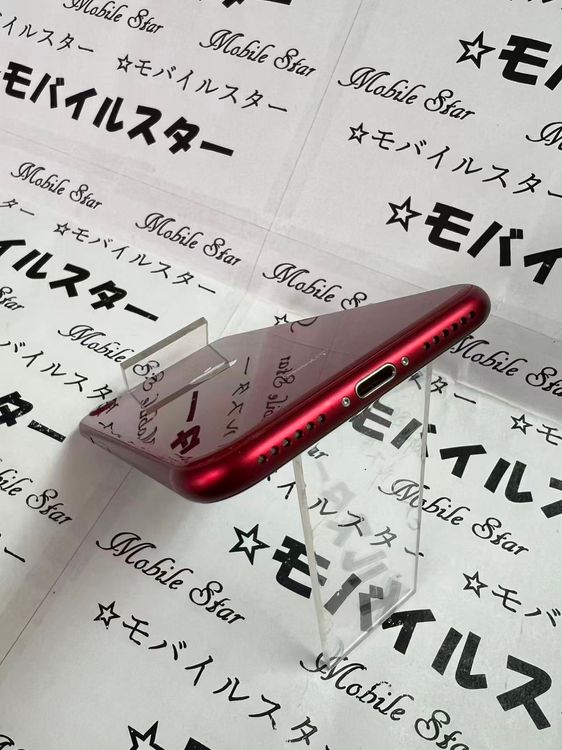 Mobile Star
Mobile Star
☆モ
イルスター
☆モバイルスター
Mobile Star
モバイルスター
☆モバイルスター
Mobile Star
Mobile Star
☆モバイ
スター
☆モバイルスター
Mobile S
イルスター
Mobile
Mobile Star
スター
バイルスター
Mobile Star
☆モバイルスター
☆モバイルスター
Mobile Star
☆モバ
☆モバイルスター
Mobile Star
Mobile Star
☆モバイ